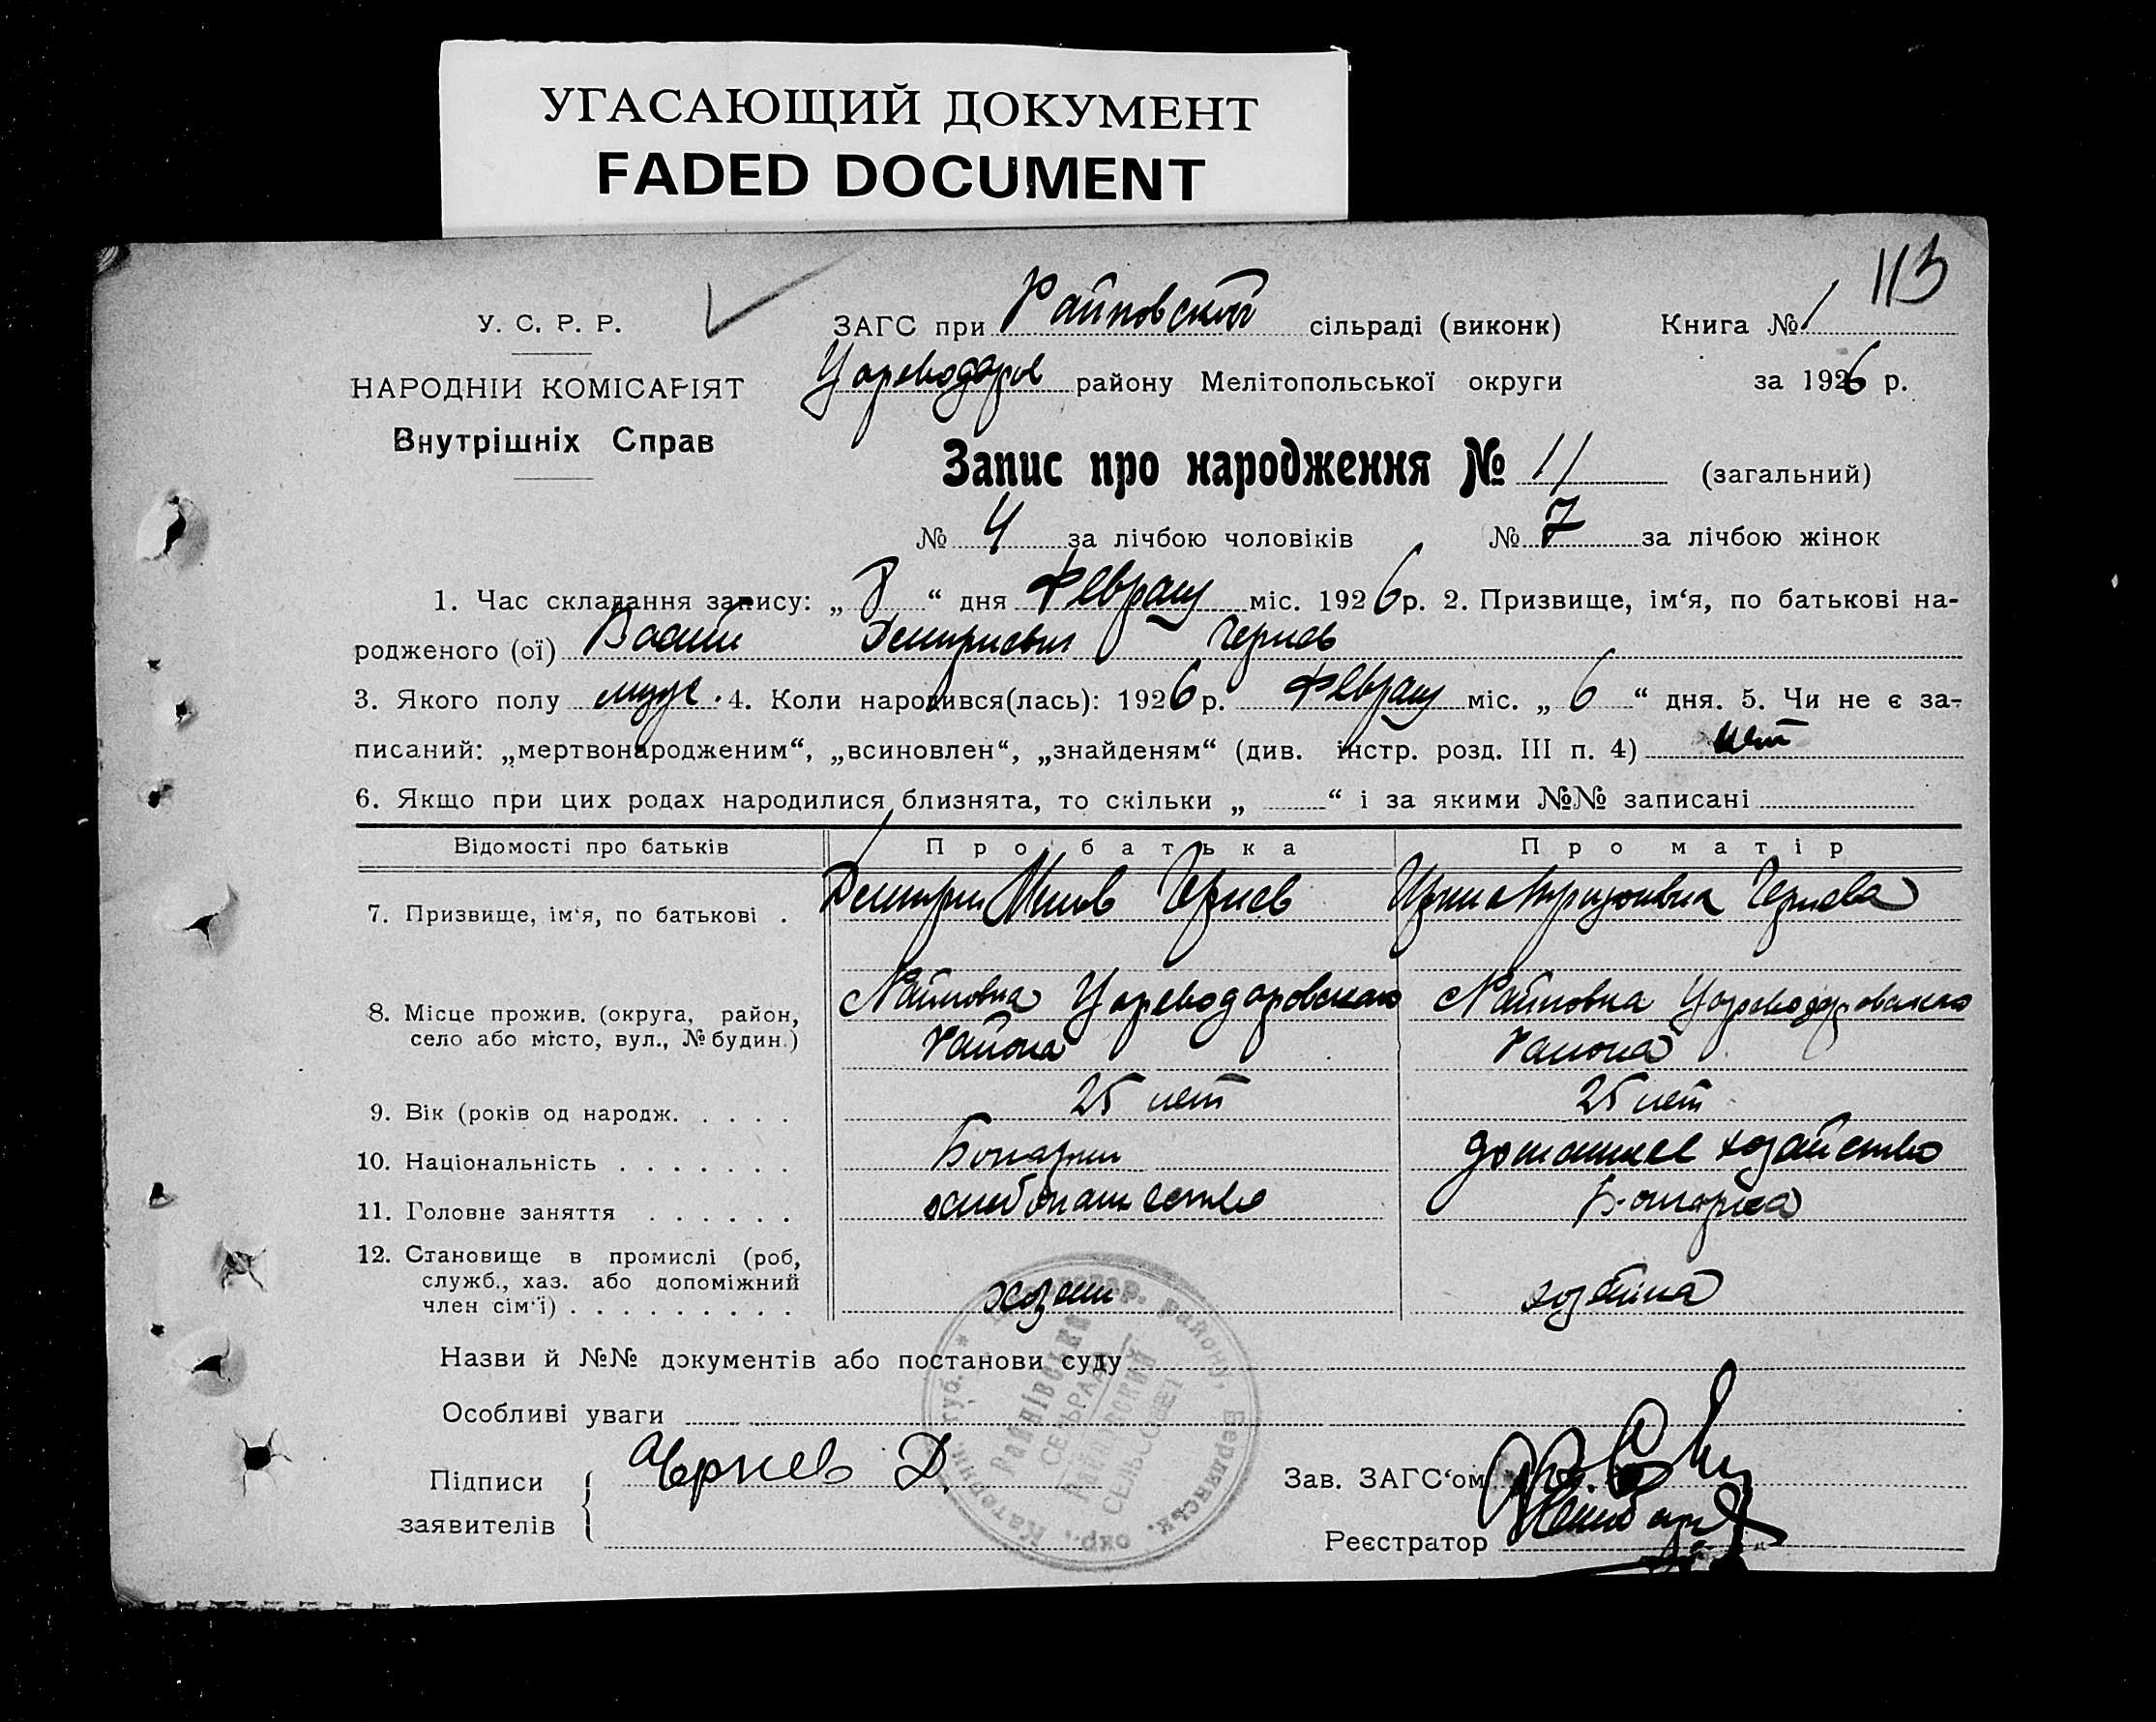 УГАСАЮЩИЙ ДОКУМЕНТ
FADED DOCUMENT
113
У. С. Р. Р.
НАРОДНІЙ КОМІСАРІЯТ
Внутрішніх Справ
ЗАГС при Райновской сільраді (виконк) Книга № 1
Цареводаров району Мелітопольської округи за 1926 р.
Запис про народження № 11 (загальний)
№ 4 за лічбою чоловіків № 7 за лічбою жінок
1. Час складання запису: „ 8 “ дня Февраля міс. 1926 р. 2. Призвище, ім‘я, по батькові на-
родженого (ої) Васили Дмитриевич Чернев
3. Якого полу муж. 4. Коли народився(лась): 1926 р. Февраля міс. „ 6 “ дня. 5. Чи не є за-
писаний: „мертвонародженим“, „всиновлен“, „знайденям“ (див. інстр. розд. III п. 4) нет
6. Якщо при цих родах народилися близнята, то скільки „ “ і за якими №№ записані
Відомості про батьків Про батька Про матір
7. Призвище, ім‘я, по батькові . Дмитри Чернев Чернева
8. Місце прожив. (округа, район, село або місто, вул., № будин.) Райновка Цареводаровского района Райновка Цареводаровского района
9. Вік (років од народж. . . . . 25 лет 25 лет
10. Національність . . . . . . . Болгарин домашнее хозайство
11. Головне заняття . . . . . . хлебопашество Болгарка
12. Становище в промислі (роб, служб., хаз. або допоміжний член сім‘ї) . . . . . . . . . хозяин хозайка
Назви й №№ документів або постанови суду
Особливі уваги
Підписи заявителів Чернев Д.
Зав. ЗАГС‘ом
Реєстратор
Райнівський
СЕЛЬРАДА
Райновский
СЕЛЬСОВЕТ
району, Бердянськ. окр., Катерин. губ. *